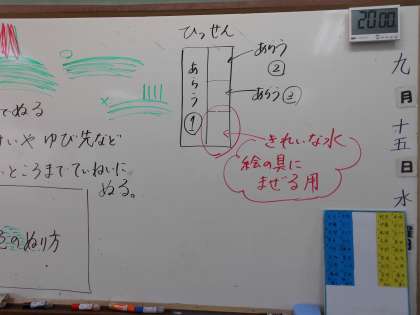 ひっせん
あらう
①
あらう
②
あらう③
きれいな水
絵の具に
まぜる用
てぬる
ゆび先など
ところまでていねいに
ぬる。
のぬり方
20:00
九
月
十
五
日
水